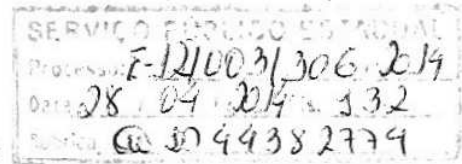 SERVIÇO PÚBLICO ESTADUAL
Processo: E-12/003/306/2014
Data 28 / 04 / 2014 fls. 132
Rubrica 44382774